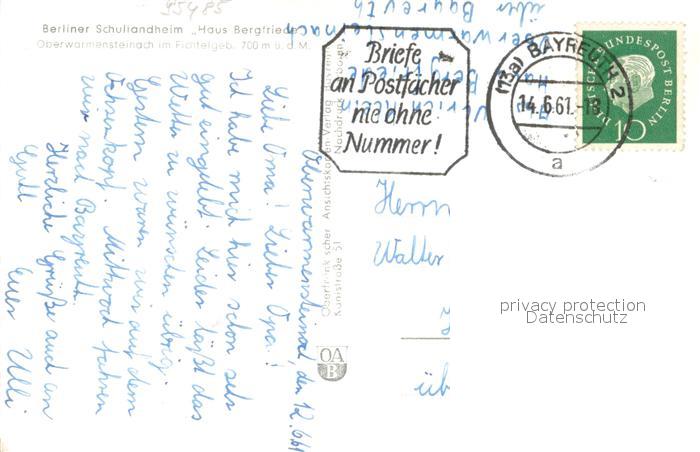 95485
Berliner Schullandheim „Haus Bergfriede"
Oberwarmensteinach im Fichtelgeb. 700 m ü. d. M.
Oberwarmensteinach, den 12.6.61
Liebe Oma! Lieber Opa!
Ich habe mich hier schon sehr
gut eingelebt. Leider läßt das
Wetter zu wünschen übrig.
Gestern waren wir auf dem
Ochsenkopf. Mittwoch fahren
wir nach Bayreuth.
Herzliche Grüße auch an
Euer Ulli
Oberfränkischer Ansichtskarten-Verlag Bayreuth
Kunstraße 51 Nachdruck verboten
OA
B
Ulrich
Haus Bergfriede
Oberwarmensteinach
über Bayreuth
Briefe
an Postfächer
nie ohne
Nummer!
(13a) BAYREUTH 2
14.6.61.-18
a
DEUTSCHE BUNDESPOST BERLIN
10
Herrn
Walter
üb
privacy protection
Datenschutz